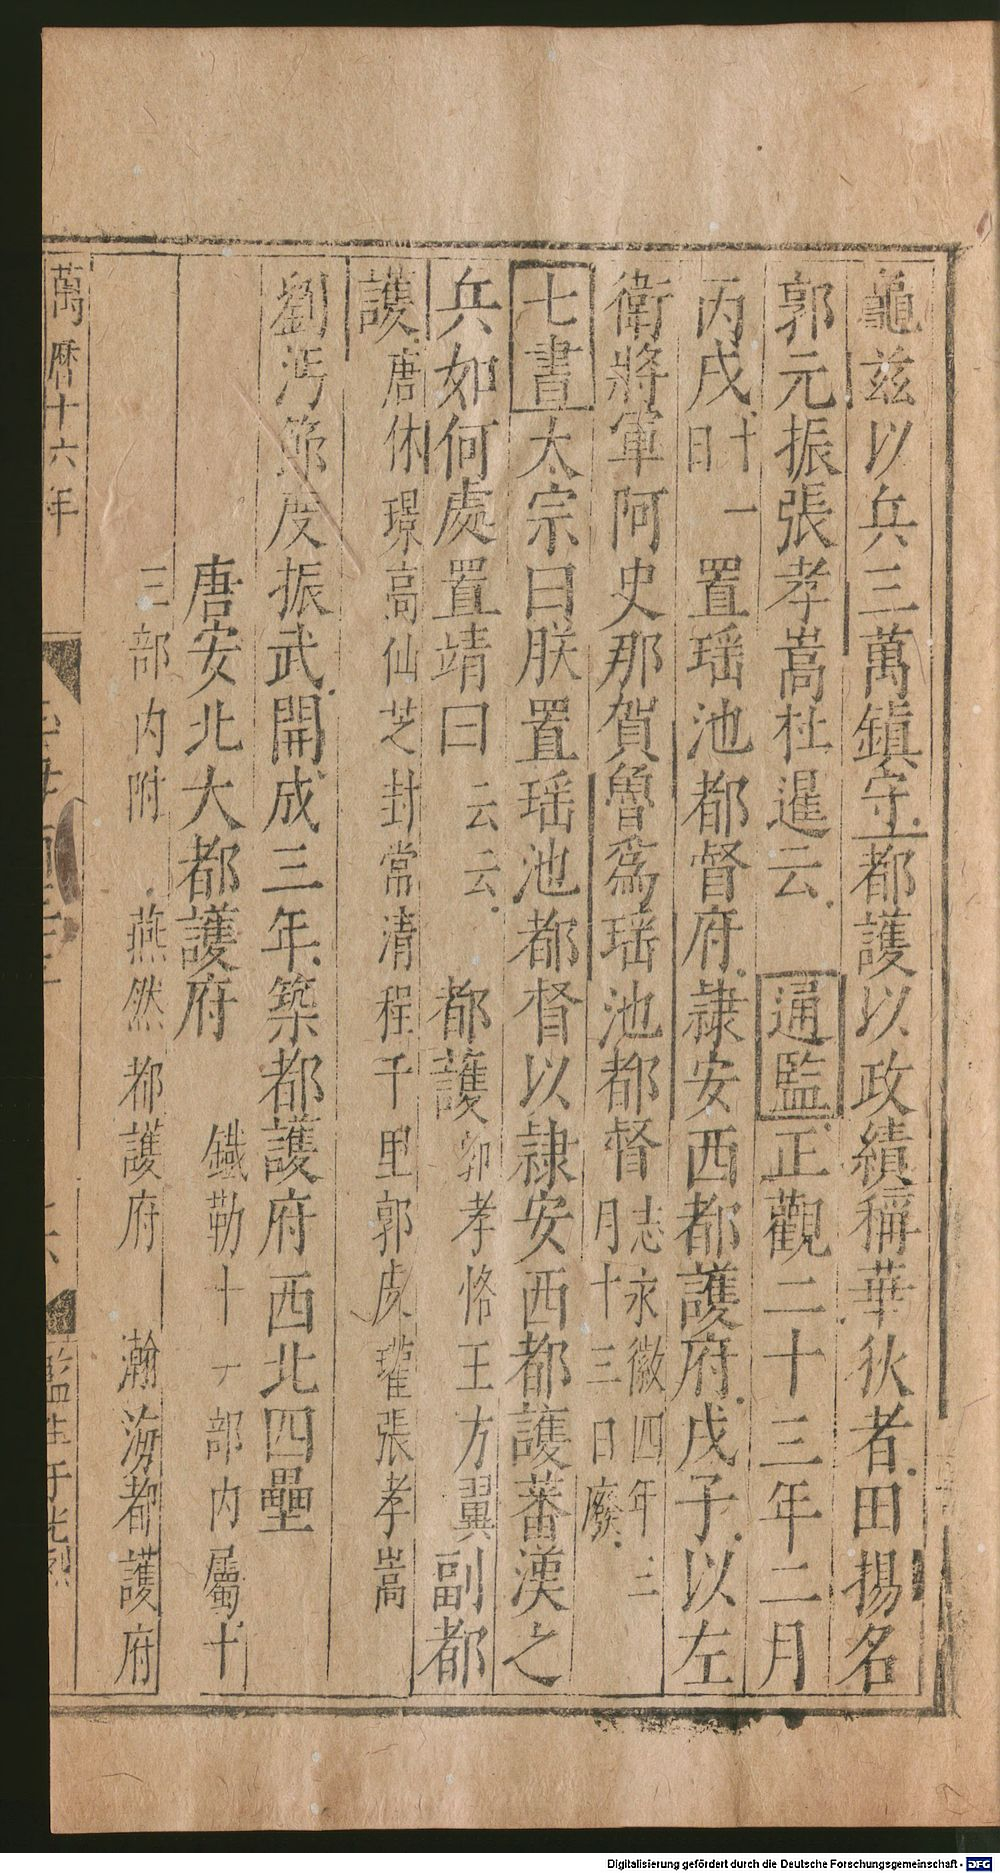 龜兹以兵三萬鎮守都護以政績稱華狄者田揚名
郭元振張孝嵩杜暹云通監正觀二十三年二月
丙戌十一日置瑶池都督府隷安西都護府戊子以左
衛將軍阿史那賀魯爲瑶池都督志永徽四年三月十三日廢
七書太宗曰朕置瑶池都督以隷安西都護蕃漢之
兵如何處置靖曰云云都護郭孝恪王方翼副都
護唐休璟高仙芝封常清程千里郭虔瓘張孝嵩
劉沔節度振武開成三年築都護府西北四壘
唐安北大都護府鐵勒十一部内屬十
三部内附燕然都護府瀚海都護府
萬曆十六年
監生于光烈
Digitalisierung gefördert durch die Deutsche Forschungsgemeinschaft - DFG